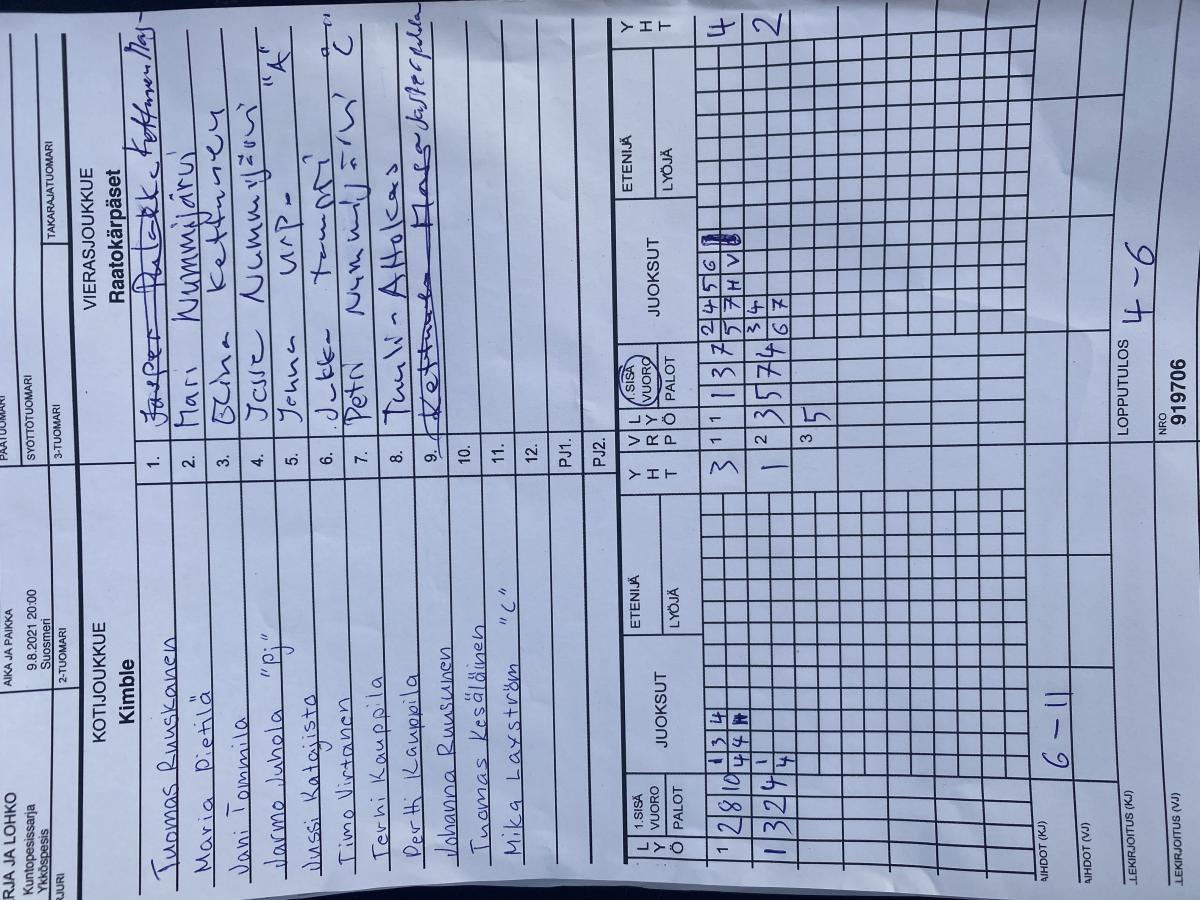 RJA JA LOHKO
Kuntopesissarja
Ykköspesis
AIKA JA PAIKKA
9.8.2021 20:00
Suosmeri
PÄÄTUOMARI
SYÖTTÖTUOMARI
2-TUOMARI
3-TUOMARI
TAKARAJATUOMARI
KOTIJOUKKUE
Kimble
VIERASJOUKKUE
Raatokärpäset
Tuomas Ruuskanen
Maria Pietilä
Jani Tommila
Jarmo Juhola "pj"
Jussi Katajisto
Timo Virtanen
Terhi Kauppila
Pertti Kauppila
Johanna Ruusunen
Tuomas Kesäläinen
Mika Laxström "C"
1. Jasper
2. Mari Nummijärvi
3. Elina Kettunen
4. Jesse Nummijärvi "A"
5. Jonna
6. Jukka Lamppi
7. Petri Nummijärvi "C"
8. Tuuli
9. Kettunen
10.
11.
12.
PJ1.
PJ2.
LYÖ
1.SISÄ VUORO
PALOT
JUOKSUT
ETENIJÄ
LYÖJÄ
YHT
VRP
LYÖ
1.SISÄ VUORO
PALOT
JUOKSUT
ETENIJÄ
LYÖJÄ
YHT
1 2 8 10 1 3 4 3 1 1 1 3 7 2 4 5 6 4
4 4 H 5 7 H V
1 3 2 4 1 1 2 3 5 7 4 3 4 2
4 6 7
3 5
AIHDOT (KJ) 6 - 11
AIHDOT (VJ)
LEKIRJOITUS (KJ)
LOPPUTULOS 4 - 6
LEKIRJOITUS (VJ)
NRO
919706